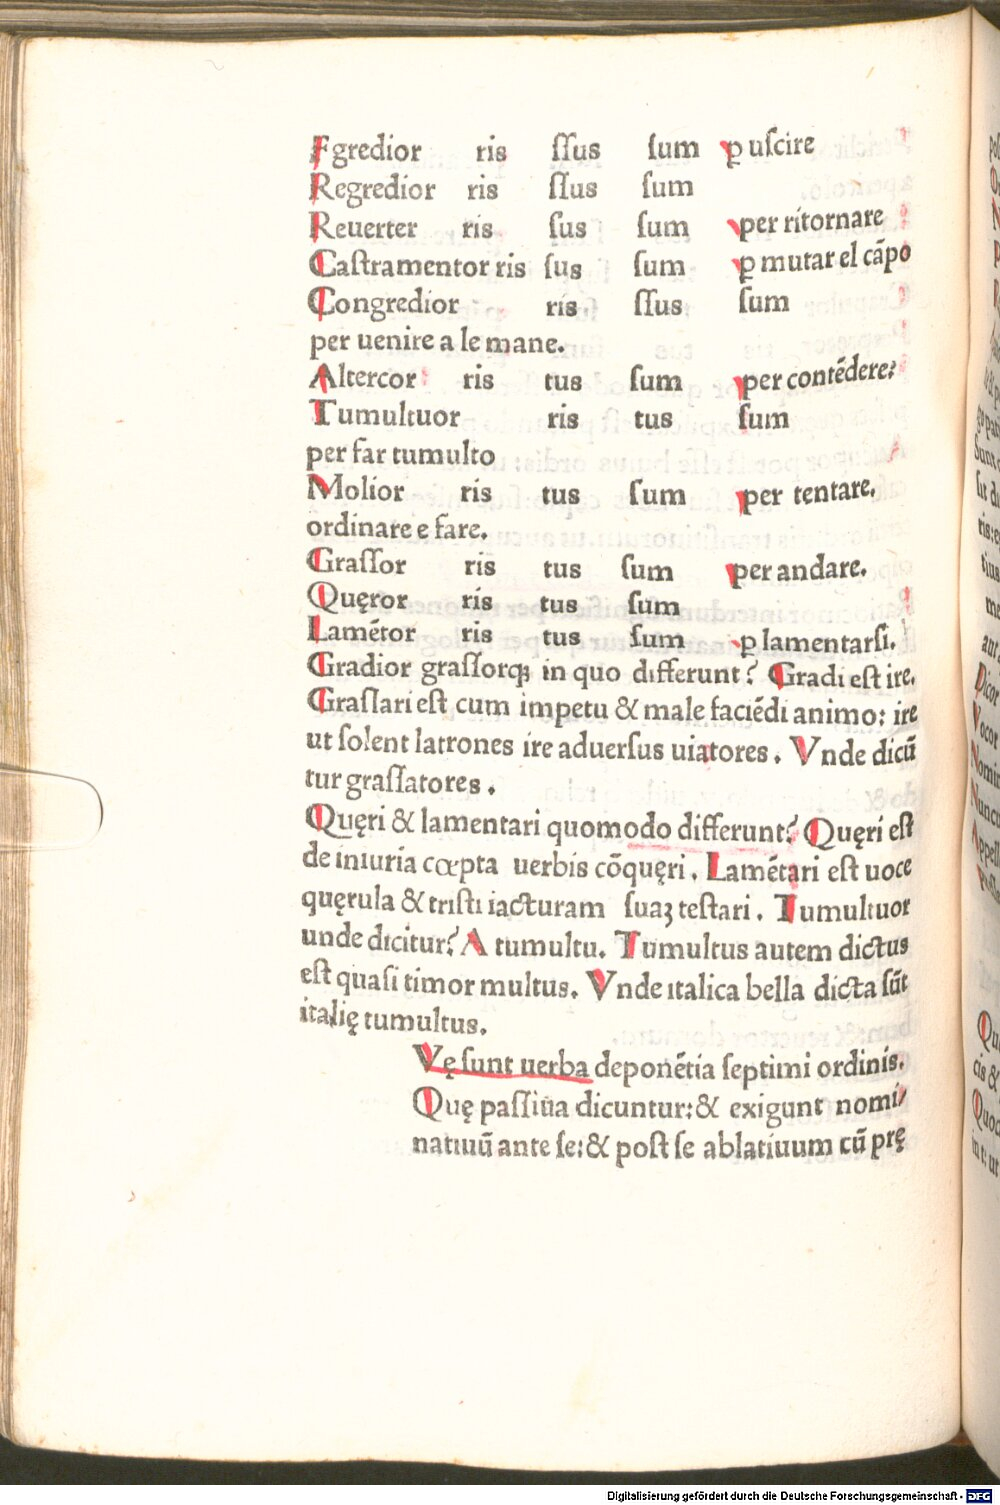 Egredior ris ſſus ſum ꝑ uſcire
Regredior ris ſſus ſum
Reuerter ris ſus ſum per ritornare
Caſtramentor ris ſus ſum ꝑ mutar el cãpo
Congredior ris ſſus ſum
per uenire a le mane.
Altercor ris tus ſum per contẽdere:
Tumultuor ris tus ſum
per far tumulto
Molior ris tus ſum per tentare.
ordinare e fare.
Graſſor ris tus ſum per andare.
Quęror ris tus ſum
Lamẽtor ris tus ſum ꝑ lamentarſi.
Gradior graſſorqꝫ in quo differunt? Gradi eſt ire.
Graſſari eſt cum impetu & male faciẽdi animo: ire
ut ſolent latrones ire aduerſus uiatores. Vnde dicũ
tur graſſatores.
Quęri & lamentari quomodo differunt? Quęri eſt
de iniuria cœpta uerbis cõquęri. Lamẽtari eſt uoce
quęrula & triſti iacturam ſuaꝫ teſtari. Tumultuor
unde dicitur? A tumultu. Tumultus autem dictus
eſt quaſi timor multus. Vnde italica bella dicta ſũt
italię tumultus.
Vę ſunt uerba deponẽtia ſeptimi ordinis.
Quę paſſiua dicuntur: & exigunt nomi/
natiuũ ante ſe: & poſt ſe ablatiuum cũ prę
Digitalisierung gefördert durch die Deutsche Forschungsgemeinschaft - DFG